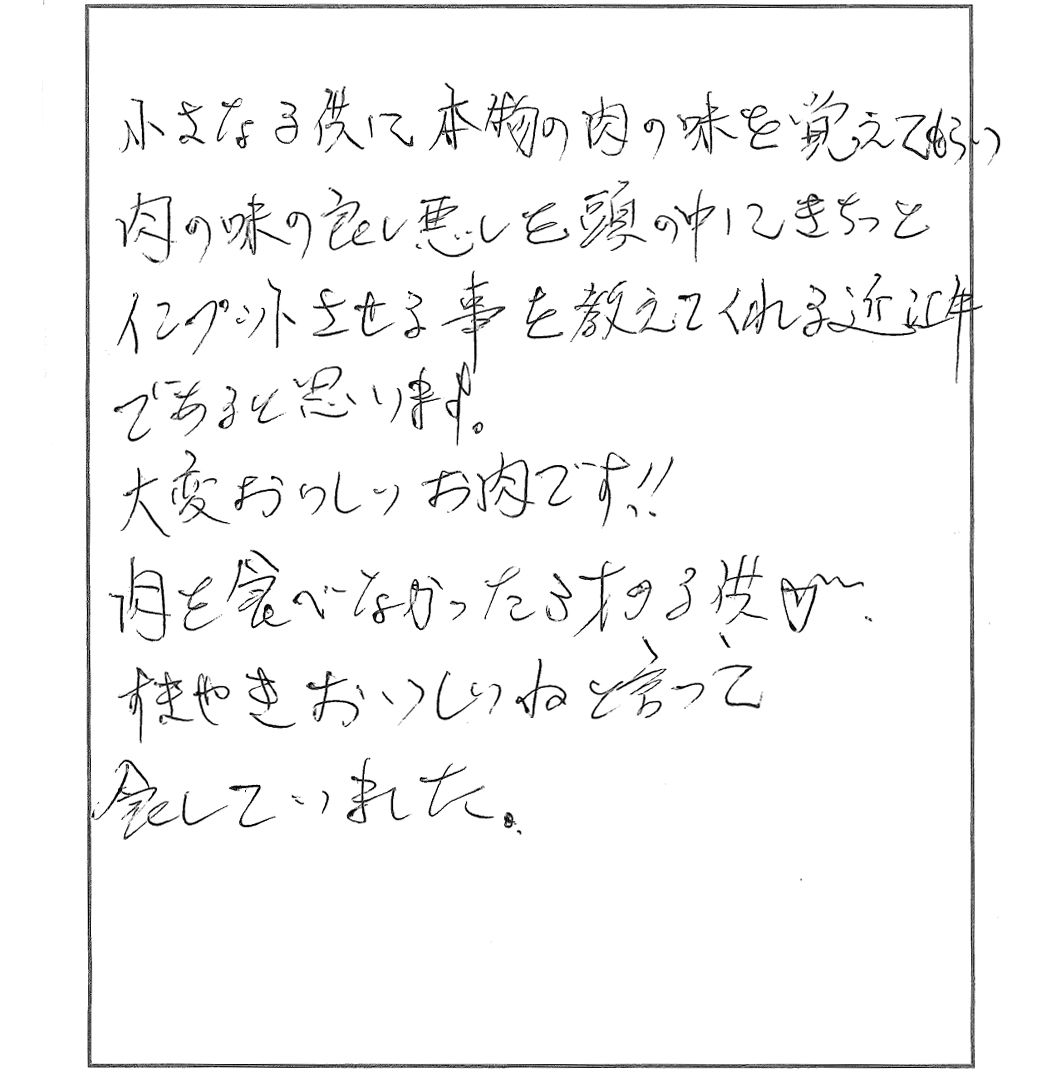 小さな子供に本物の肉の味を覚えてもらい
肉の味の良し悪しを頭の中にきちっと
インプットさせる事を教えてくれる近江牛
であると思います。
大変おいしいお肉です!!
肉を食べなかった3才の子供が
すきやきおいしいねと言って
食していました。